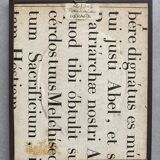 bere dignatus es mu
tui justi Abel, et s
Patriarchæ nostri A
quod tibi obtulit s
cerdos tuus Melchised
tum Sacrificium